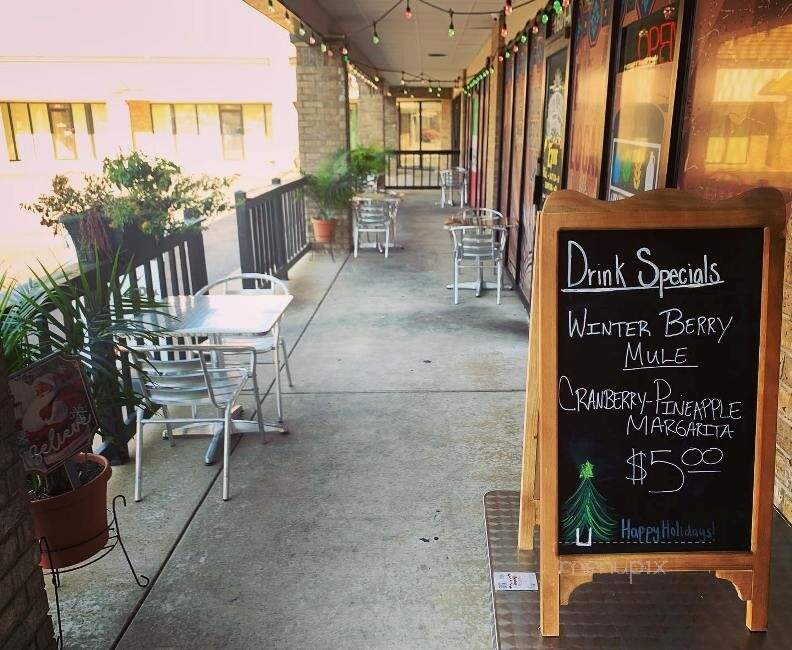 Drink Specials
WINTER BERRY
MULE
CRANBERRY-PINEAPPLE
MARGARITA
$5.00
Happy Holidays!
Believe
menupix